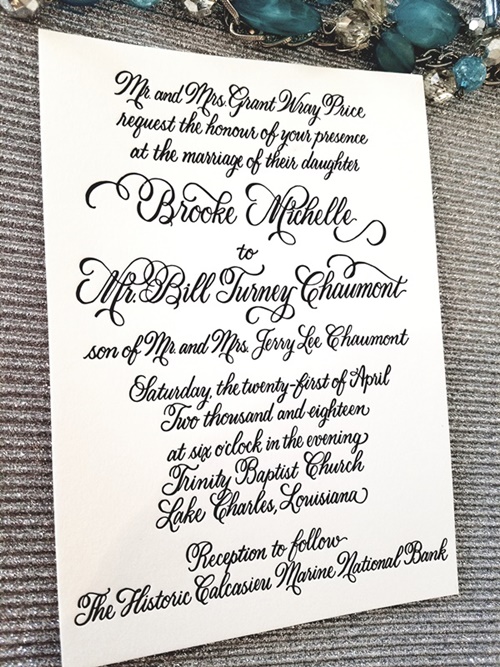 Mr. and Mrs. Grant Wray Price
request the honour of your presence
at the marriage of their daughter
Brooke Michelle
to
Mr. Bill Turney Chaumont
son of Mr. and Mrs. Jerry Lee Chaumont
Saturday, the twenty-first of April
Two thousand and eighteen
at six o'clock in the evening
Trinity Baptist Church
Lake Charles, Louisiana
Reception to follow
The Historic Calcasieu Marine National Bank